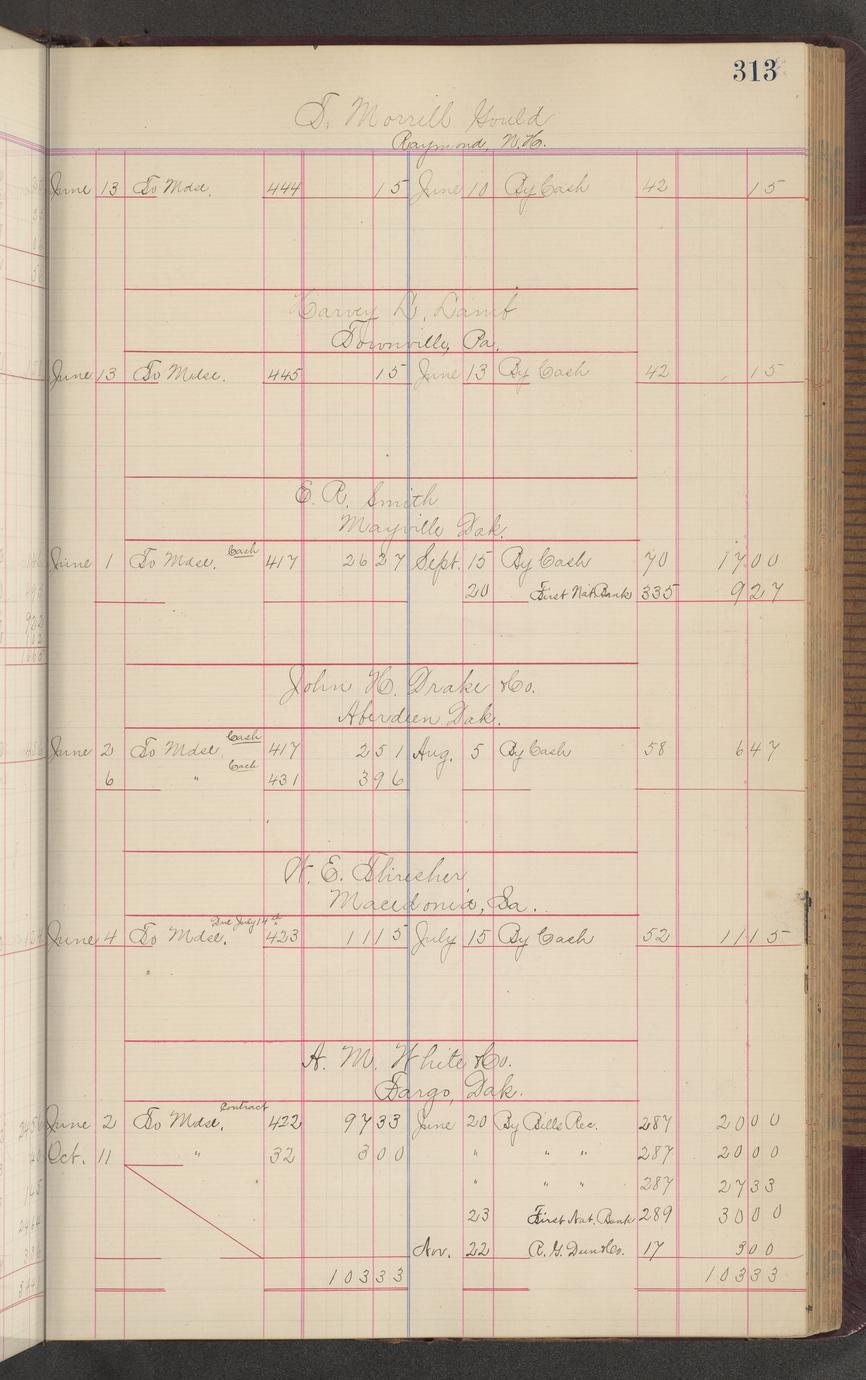 313
T. Morrill Gould
Raymond, N.H.
June 13 To Mdse. 444 15 June 10 By Cash 42 15
Harvey L. Lamb
Townville, Pa.
June 13 To Mdse. 445 15 June 13 By Cash 42 15
E. R. Smith
Mayville Dak.
June 1 To Mdse. Cash 417 26 27 Sept. 15 By Cash 70 17 00
20 First Nat. Bank 335 9 27
John H. Drake & Co.
Aberdeen Dak.
June 2 To Mdse. Cash 417 2 51 Aug. 5 By Cash 58 6 47
6 " Cash 431 3 96
W. E. Thresher
Macedonia, Ia.
June 4 To Mdse. Due July 14th 423 11 15 July 15 By Cash 52 11 15
A. M. White & Co.
Fargo, Dak.
June 2 To Mdse. Contract 422 97 33 June 20 By Bills Rec. 287 20 00
Oct. 11 " 32 3 00 " " " 287 20 00
" " " 287 27 33
23 First Nat. Bank 289 30 00
Nov. 22 R. G. Dun & Co. 17 3 00
103 33 103 33